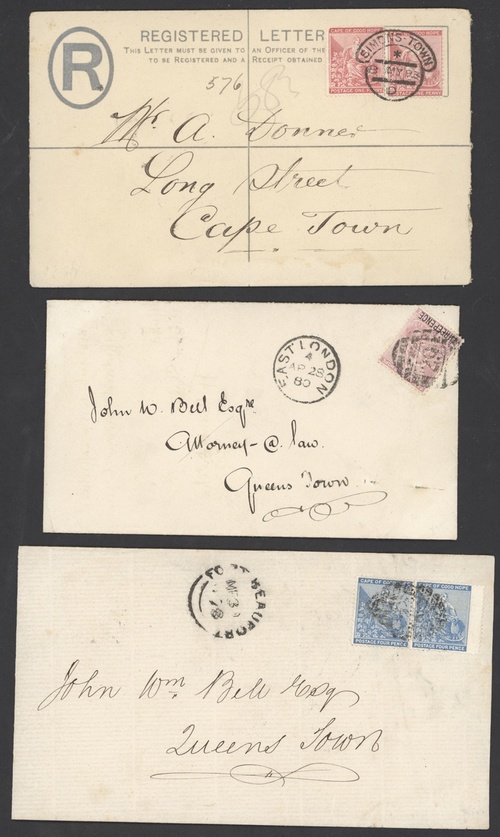 REGISTERED LETTER
THIS LETTER MUST BE GIVEN TO AN OFFICER OF THE
TO BE REGISTERED AND A RECEIPT OBTAINED
R
CAPE OF GOOD HOPE
POSTAGE ONE PENNY
SIMONS-TOWN
D
576
Mr. A. Donner
Long Street
Cape Town
THREEPENCE
EAST LONDON
4
AP 28
80
John W. Bell Esqre
Attorney-@ law.
Queens Town
FORT BEAUFORT
78
CAPE OF GOOD HOPE CAPE OF GOOD HOPE
POSTAGE FOUR PENCE POSTAGE FOUR PENCE
John Wm Bell Esq
Queens Town